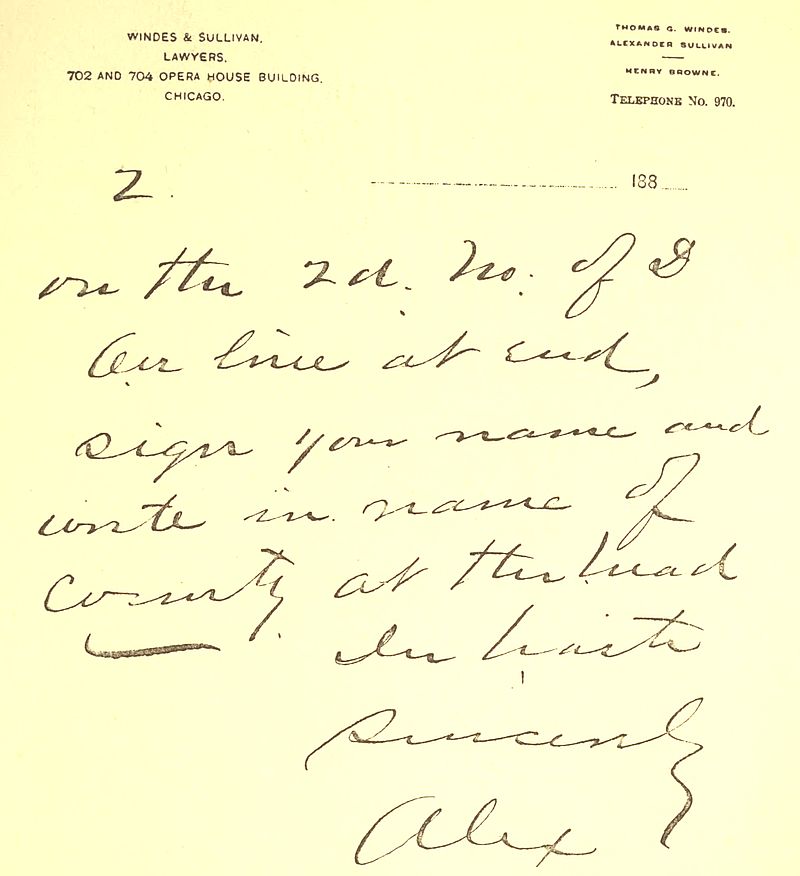 WINDES & SULLIVAN,
LAWYERS,
702 AND 704 OPERA HOUSE BUILDING,
CHICAGO.
THOMAS G. WINDES.
ALEXANDER SULLIVAN
HENRY BROWNE.
TELEPHONE No. 970.
188
2.
on the 2d. No. of D
On line at end,
sign your name and
write in name of
County at the head
In haste
Sincerely
Alex